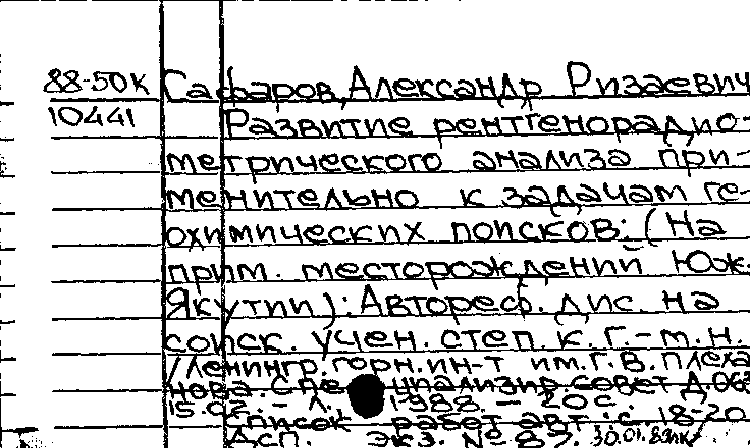 88-50к Сафаров, Александр Ризаевич
10441 Развитие рентгенорадио-
метрического анализа при-
менительно к задачам ге-
охимических поисков: (На
прим. месторождений Юж.
Якутии): Автореф. дис. на
соиск. учен. степ. к. г.-м. н.
/ Ленингр. горн. ин-т им. Г. В. Плеха
нова. Специализир совет Д.063
15.02. - Л. 1988. - 20 с.
Список работ авт.: с. 18-20.
Экз. № 82. 30.01.89